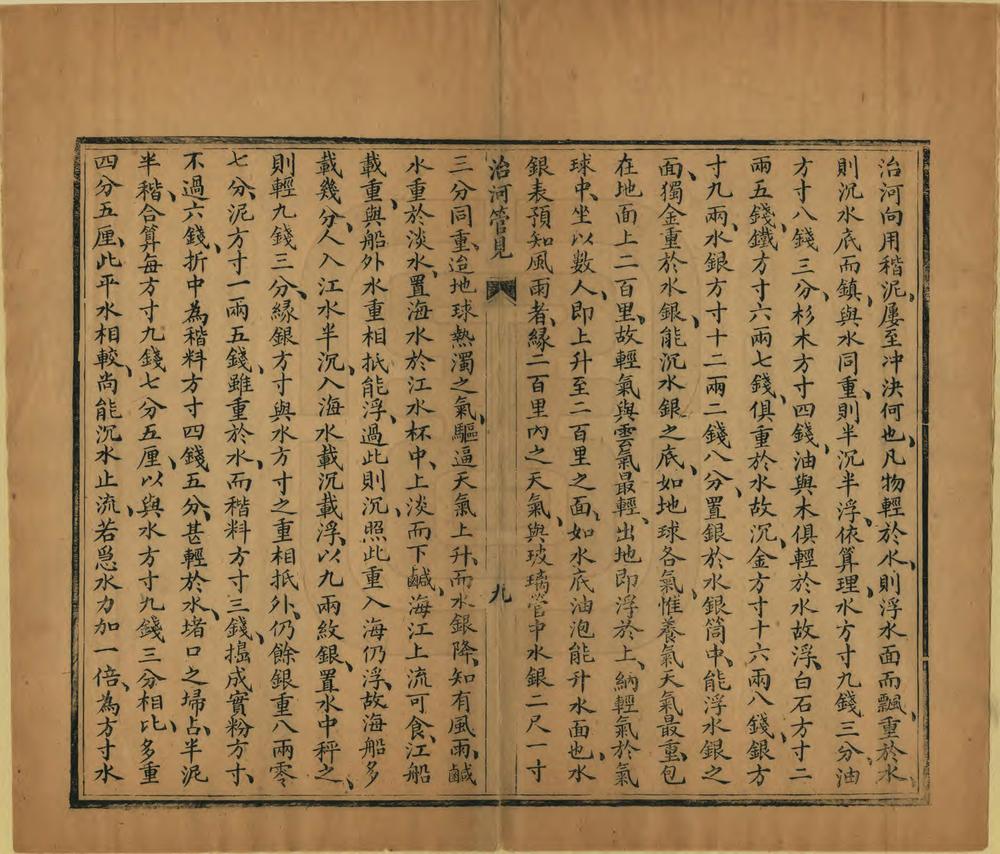 治河向用稭泥、屢至冲決何也、凡物輕於水、則浮水面而飄、重於水、
則沉水底而鎮、與水同重、則半沉半浮、依算理、水方寸九錢三分、油
方寸八錢三分、杉木方寸四錢、油與木俱輕於水故浮、白石方寸二
兩五錢、鐵方寸六兩七錢、俱重於水故沉、金方寸十六兩八錢、銀方
寸九兩、水銀方寸十二兩二錢八分、置銀於水銀筒中、能浮水銀之
面、獨金重於水銀、能沉水銀之底、如地球各氣、惟養氣天氣最重、包
在地面上二百里、故輕氣與雲氣最輕、出地即浮於上、納輕氣於氣
球中、坐以數人、即上升至二百里之面、如水底油泡能升水面也、水
銀表預知風雨者、緣二百里內之天氣、與玻璃管中水銀二尺一寸
治河管見
九
三分同重、迨地球熱濁之氣、驅逼天氣上升、而水銀降、知有風雨、鹹
水重於淡水、置海水於江水杯中、上淡而下鹹、海江上流可食、江船
載重、與船外水重相抵能浮、過此則沉、照此重入海仍浮、故海船多
載幾分、人入江水半沉、入海水載沉載浮、以九兩紋銀、置水中秤之、
則輕九錢三分、緣銀方寸與水方寸之重相抵外、仍餘銀重八兩零
七分、泥方寸一兩五錢、雖重於水、而稭料方寸三錢、搗成實粉方寸、
不過六錢、折中為稭料方寸四錢五分、甚輕於水、堵口之埽、占半泥
半稭、合算每方寸九錢七分五厘、以與水方寸九錢三分相比、多重
四分五厘、此平水相較、尚能沉水止流、若急水力加一倍、為方寸水